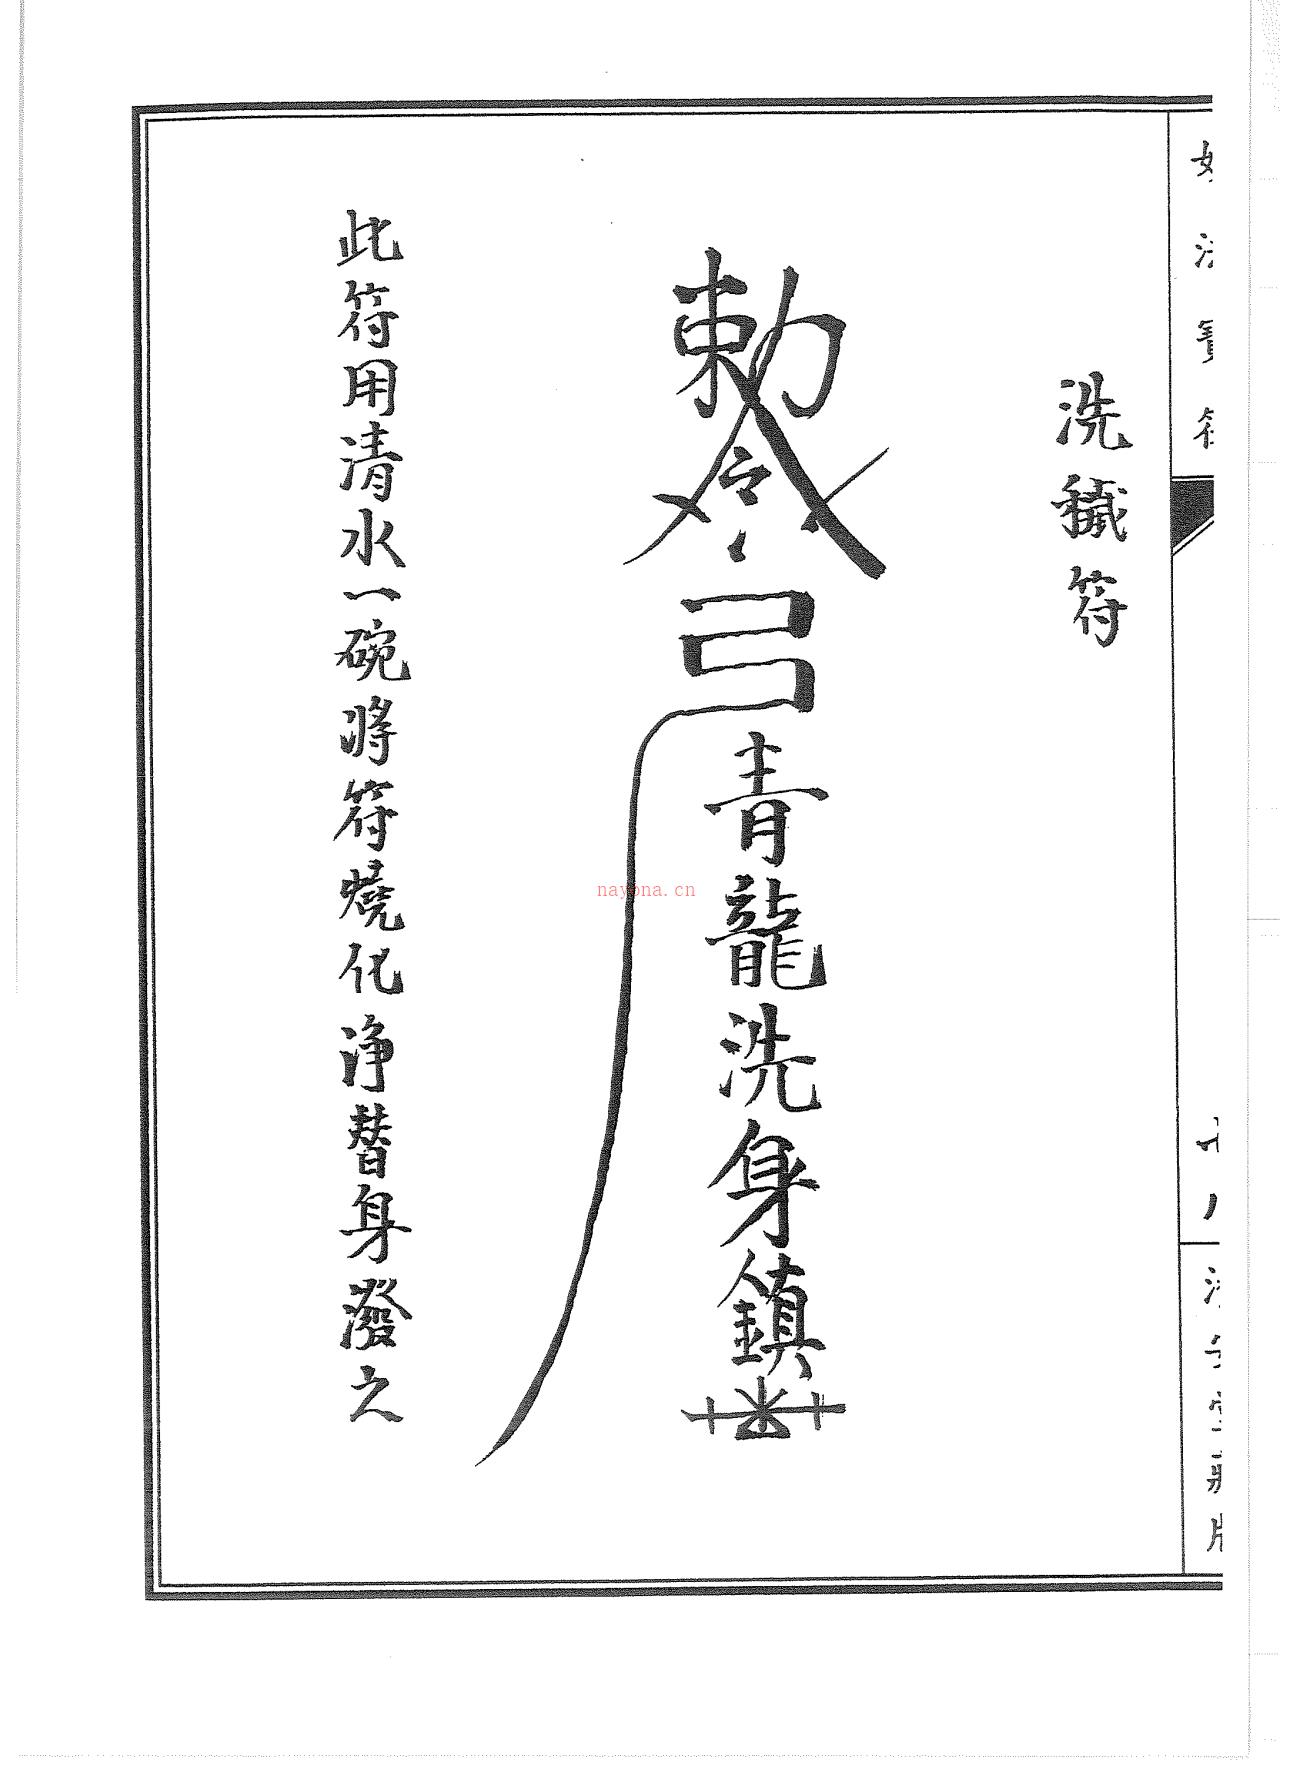 洗穢符
勅令
弓青龍洗身鎮
此符用清水一碗將符燒化淨替身潑之
nayona.cn